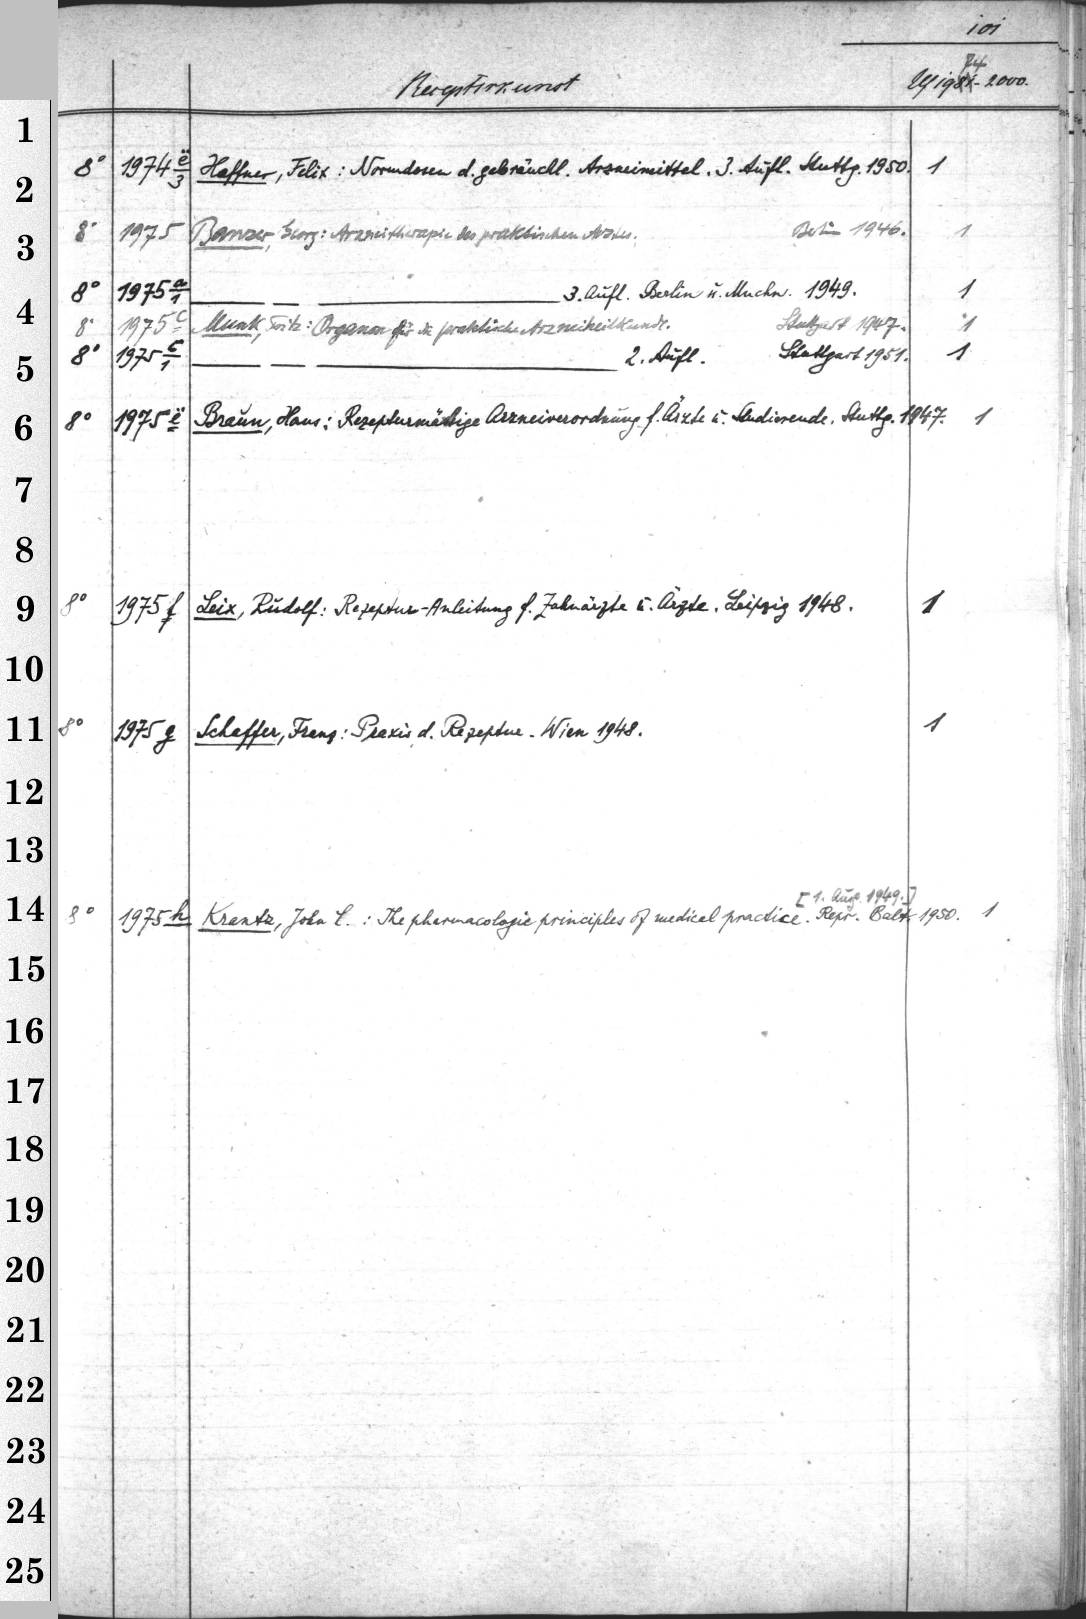 101
Receptirkunst
74
Uf 1981-2000.
8° 1974 ë/3 Haffner, Felix: Normdosen d. gebräuchl. Arzneimittel. 3. Aufl. Stuttg. 1950. 1
8° 1975 Banzer, Georg: Arzneitherapie des praktischen Arztes. Berlin 1946. 1
8° 1975 a/1 3. Aufl. Berlin ü. Mnchn. 1949. 1
8° 1975 c Munk, Fritz: Organon für die praktische Arzneiheilkunde. Stuttgart 1947. 1
8° 1975 c/1 2. Aufl. Stuttgart 1951. 1
8° 1975 ë Braun, Hans: Rezepturmäßige Arzneiverordnung f. Ärzte ü. Studierende. Stuttg. 1947. 1
8° 1975 f Leix, Rudolf: Rezeptur-Anleitung f. Zahnärzte ü. Ärzte. Leipzig 1948. 1
8° 1975 g Schaffer, Franz: Praxis d. Rezeptur. Wien 1948. 1
[1. Aug. 1949.]
8° 1975 h Krantz, John C.: The pharmacologic principles of medical practice. Repr. Balt. 1950. 1
1
2
3
4
5
6
7
8
9
10
11
12
13
14
15
16
17
18
19
20
21
22
23
24
25